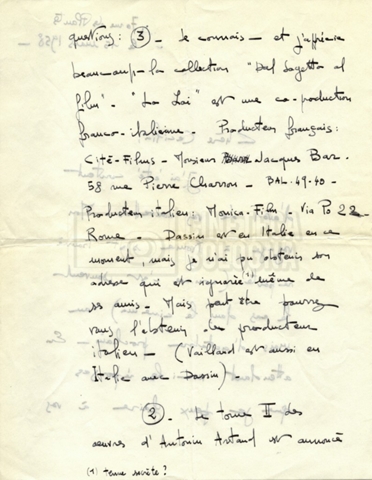 questions : (3) - Je connais - et j'apprécie
beaucoup - la collection "Dal Sogetto al
film". "La Loi" est une co-production
franco-italienne. Producteur français :
Cité-Films - Monsieur Jacques Bar.
58 rue Pierre Charron - BAL.49-40 -
Producteur italien : Monica-Film - Via Po 22
Rome - Dassin est en Italie en ce
moment, mais je n'ai pu obtenir son
adresse qui est ignorée (1) même de
ses amis - Mais peut être pourrez
vous l'obtenir du producteur
italien - (Vailland est aussi en
Italie avec Dassin).
(2). Le tome II des
œuvres d'Antonin Artaud est annoncé
(1) tenue secrète ?